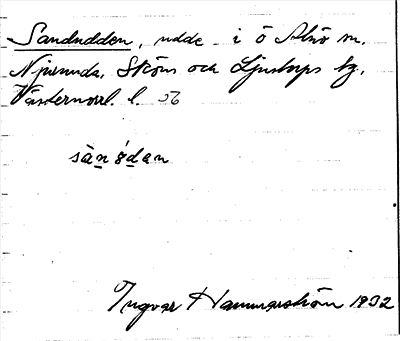 Sandudden, udde i ö Alnö sn.
Njurunda, Sköns och Ljustorps tg.
Västernorrl. l.
sànódan
Ingvar Hammarström 1932